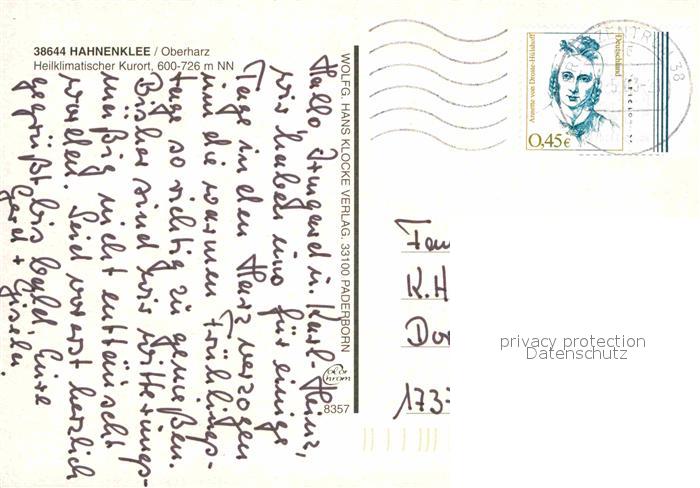 38644 HAHNENKLEE / Oberharz
Heilklimatischer Kurort, 600-726 m NN
Hallo Irmgard u. Karl-Heinz,
wir haben uns für einige
Tage in den Harz verzogen
um die warmen Frühlings-
tage so richtig zu genießen.
Bisher sind wir witterungs-
mäßig nicht enttäuscht
worden. Seid vorerst herzlich
gegrüßt bis bald Eure
Gerd + Gisela.
WOLFG. HANS KLOCKE VERLAG, 33100 PADERBORN
8357
Annette von Droste-Hülshoff
Deutschland
0,45€
Fam
K.H
Dor
173
privacy protection
Datenschutz